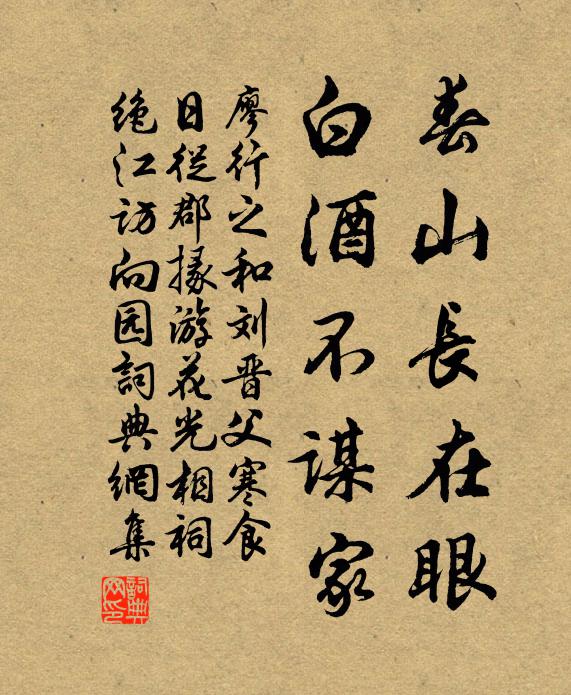 春山長在眼
白酒不謀家
廖行之和刘晋父寒食
日従郡掾游花光相祠
绝江访向园詞典網集